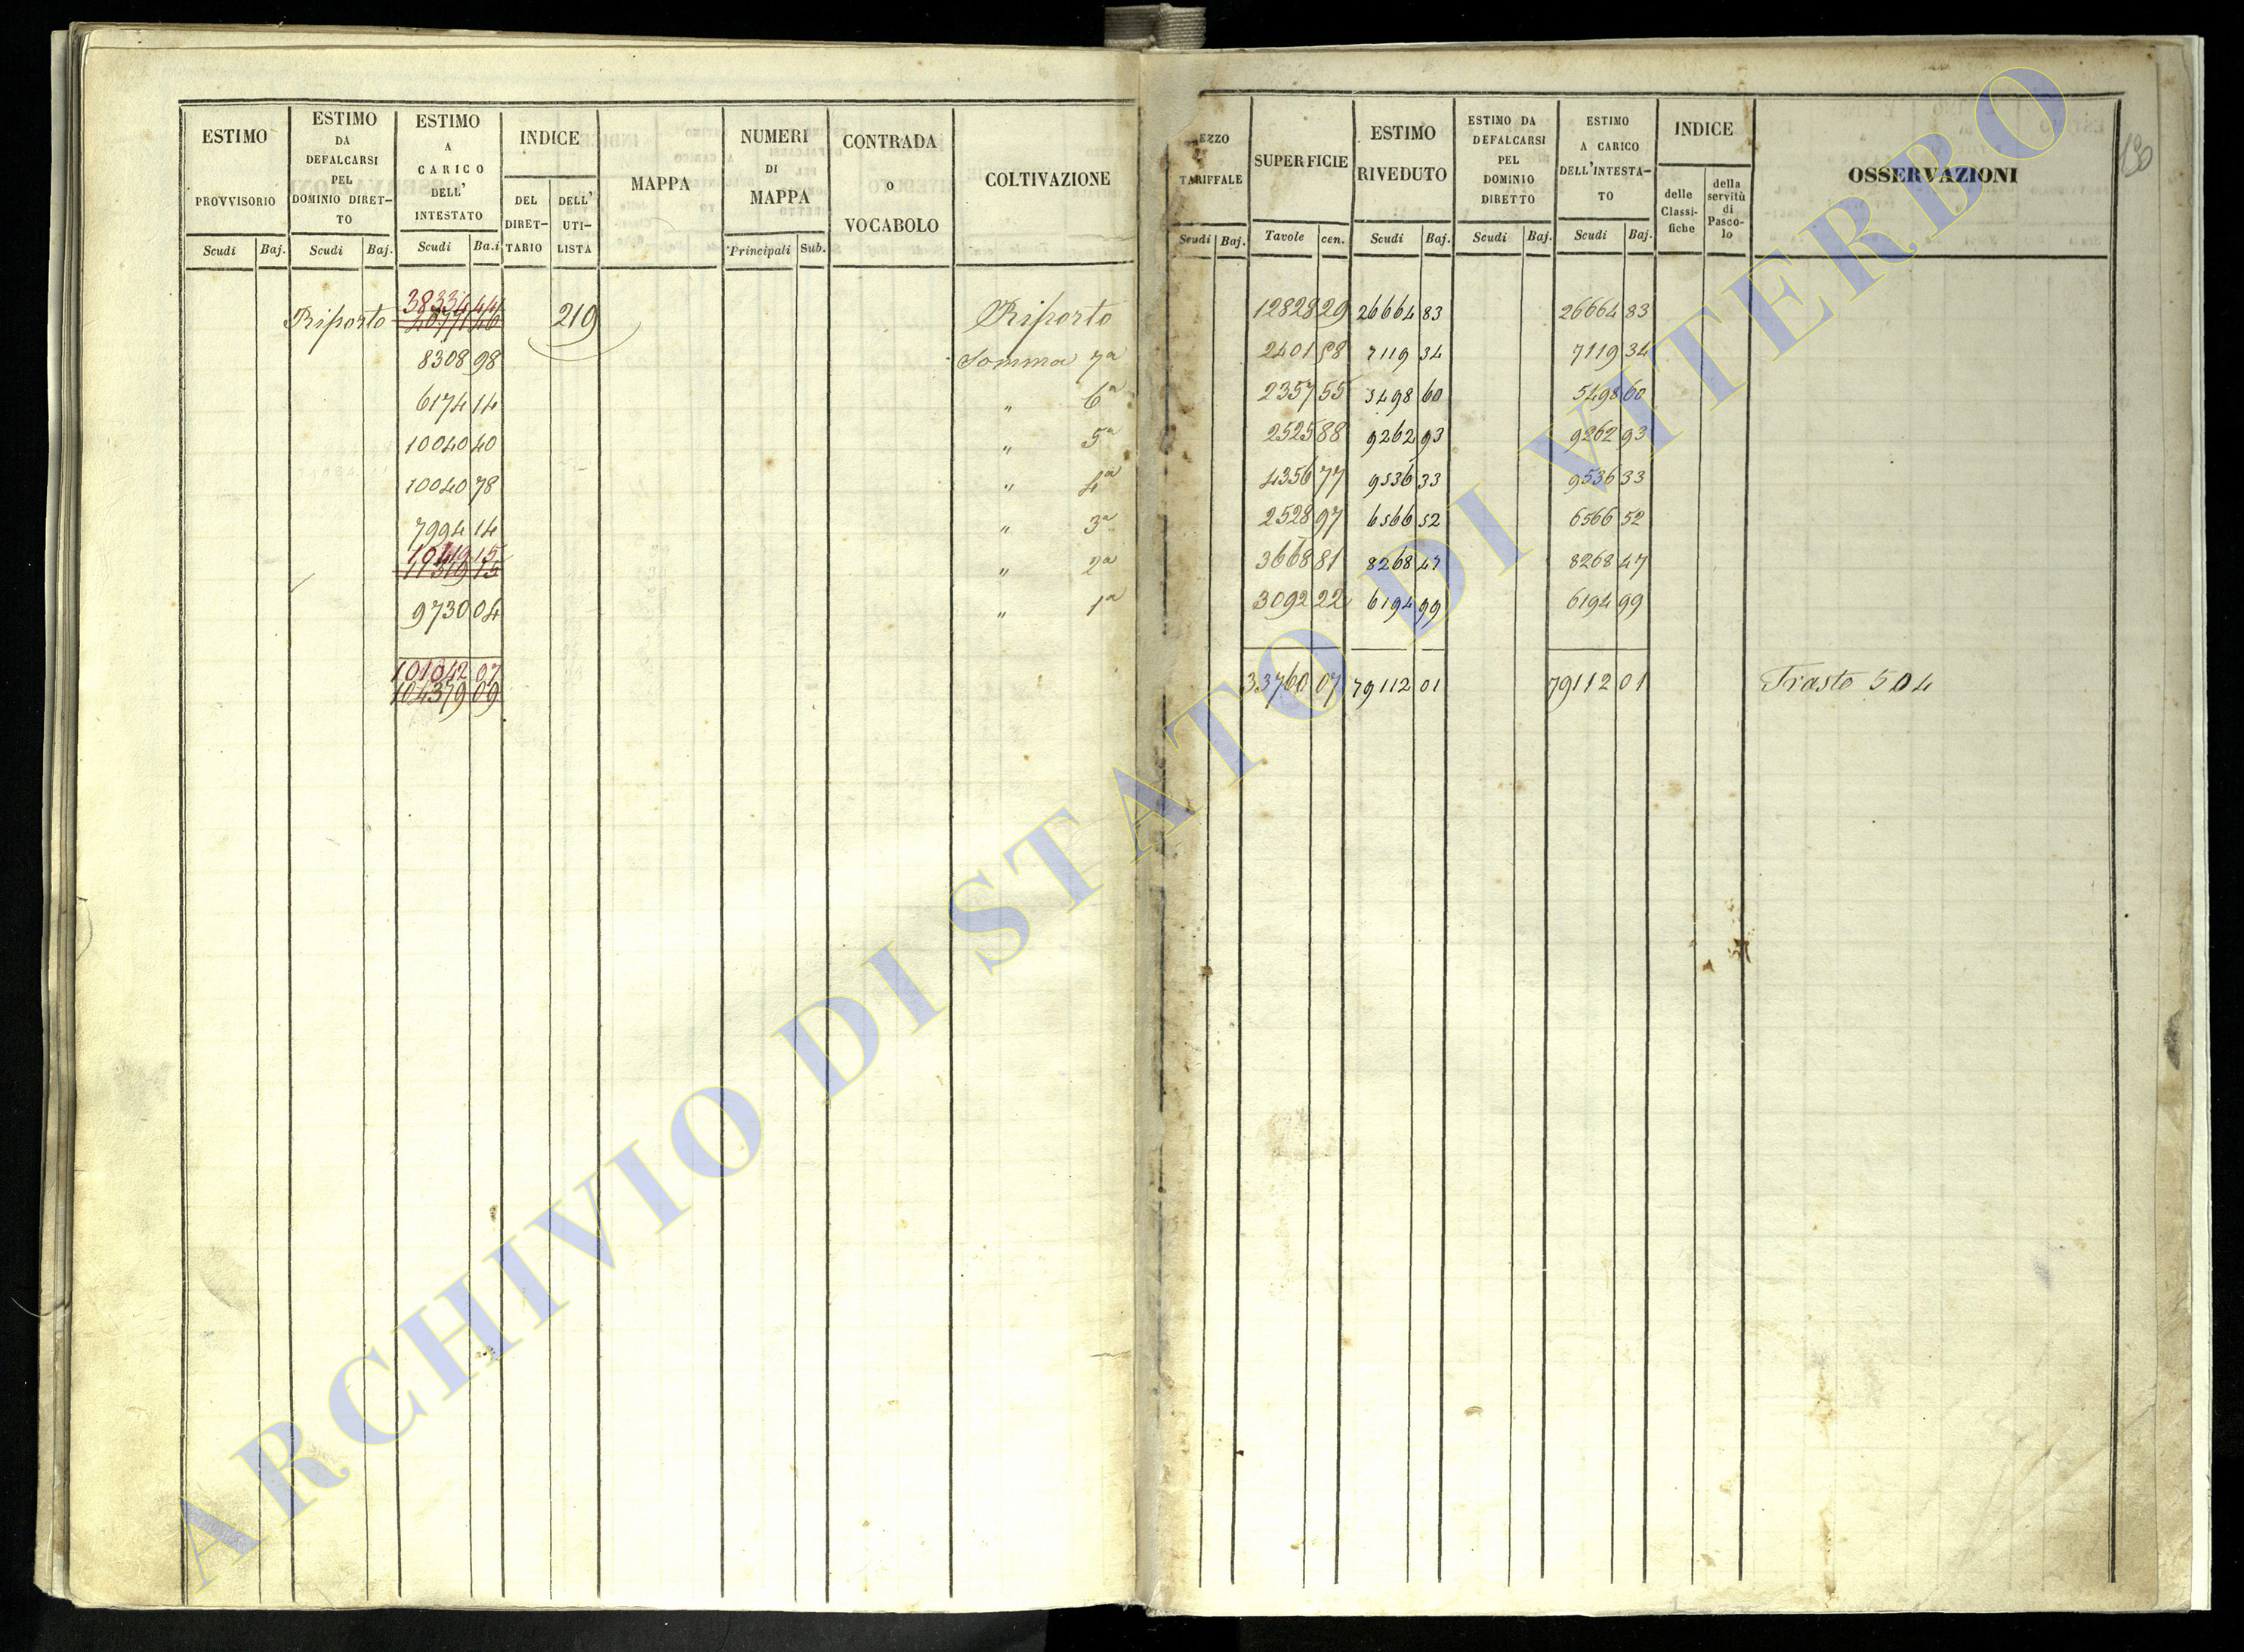 ESTIMO PROVVISORIO
ESTIMO DA DEFALCARSI PEL DOMINIO DIRET-TO
ESTIMO A CARICO DELL' INTESTATO
INDICE
DEL DIRET-TARIO
DELL' UTI-LISTA
MAPPA
NUMERI DI MAPPA
CONTRADA O VOCABOLO
COLTIVAZIONE
Scudi Baj. Scudi Baj. Scudi Ba.i Principali Sub.
EZZO TARIFFALE
SUPERFICIE
ESTIMO RIVEDUTO
ESTIMO DA DEFALCARSI PEL DOMINIO DIRETTO
ESTIMO A CARICO DELL'INTESTA-TO
INDICE
delle Classi-fiche
della servitù di Pasco-lo
OSSERVAZIONI
Scudi Baj. Tavole cen. Scudi Baj. Scudi Baj. Scudi Baj.
130
38334 44
Riporto 40771 46 219 Riporto 12828 29 26664 83 26664 83
8308 98 Somma 7a 2401 58 7119 34 7119 34
6174 14 " 6a 2357 55 5498 60 5498 60
10040 40 " 5a 2525 88 9262 93 9262 93
10040 78 " 4a 4356 77 9536 33 9536 33
7994 14 " 3a 2528 97 6566 52 6566 52
10419 15
11319 15 " 2a 3668 81 8268 47 8268 47
9730 04 " 1a 3092 22 6194 99 6194 99
101042 07
104379 09 33760 07 79112 01 79112 01 Trasto 504
ARCHIVIO DI STATO DI VITERBO